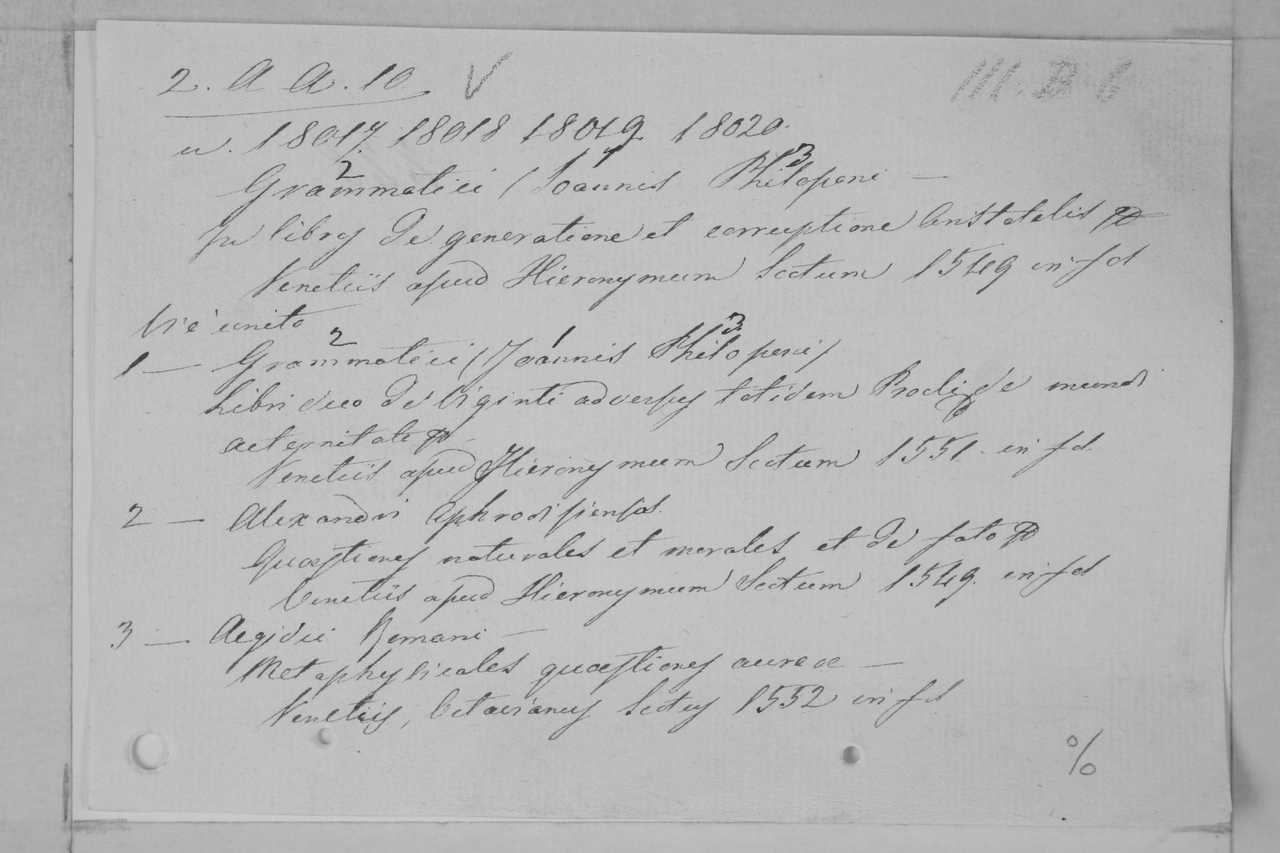 2. A A. 10 V III. B. V
n. 18017. 18018 18019 18020.
Grammatici (Joannis Philoponi —
in libros De generatione et corruptione Aristotelis
Venetiis apud Hieronymum Scotum 1549 in fol
Vi è unito
1 — Grammatici (Joannis Philoponi)
Libri duo De Viginti adversus totidem Procli de mundi
aeternitate
Venetiis apud Hieronymum Scotum 1551. in fol.
2 — Alexandri Aphrodisiensis.
Quaestiones naturales et morales et De fato
Venetiis apud Hieronymum Scotum 1549. in fol
3 — Aegidii Romani —
Metaphysicales quaestiones aureae —
Venetiis, Octavianus Scotus 1552 in fol
%